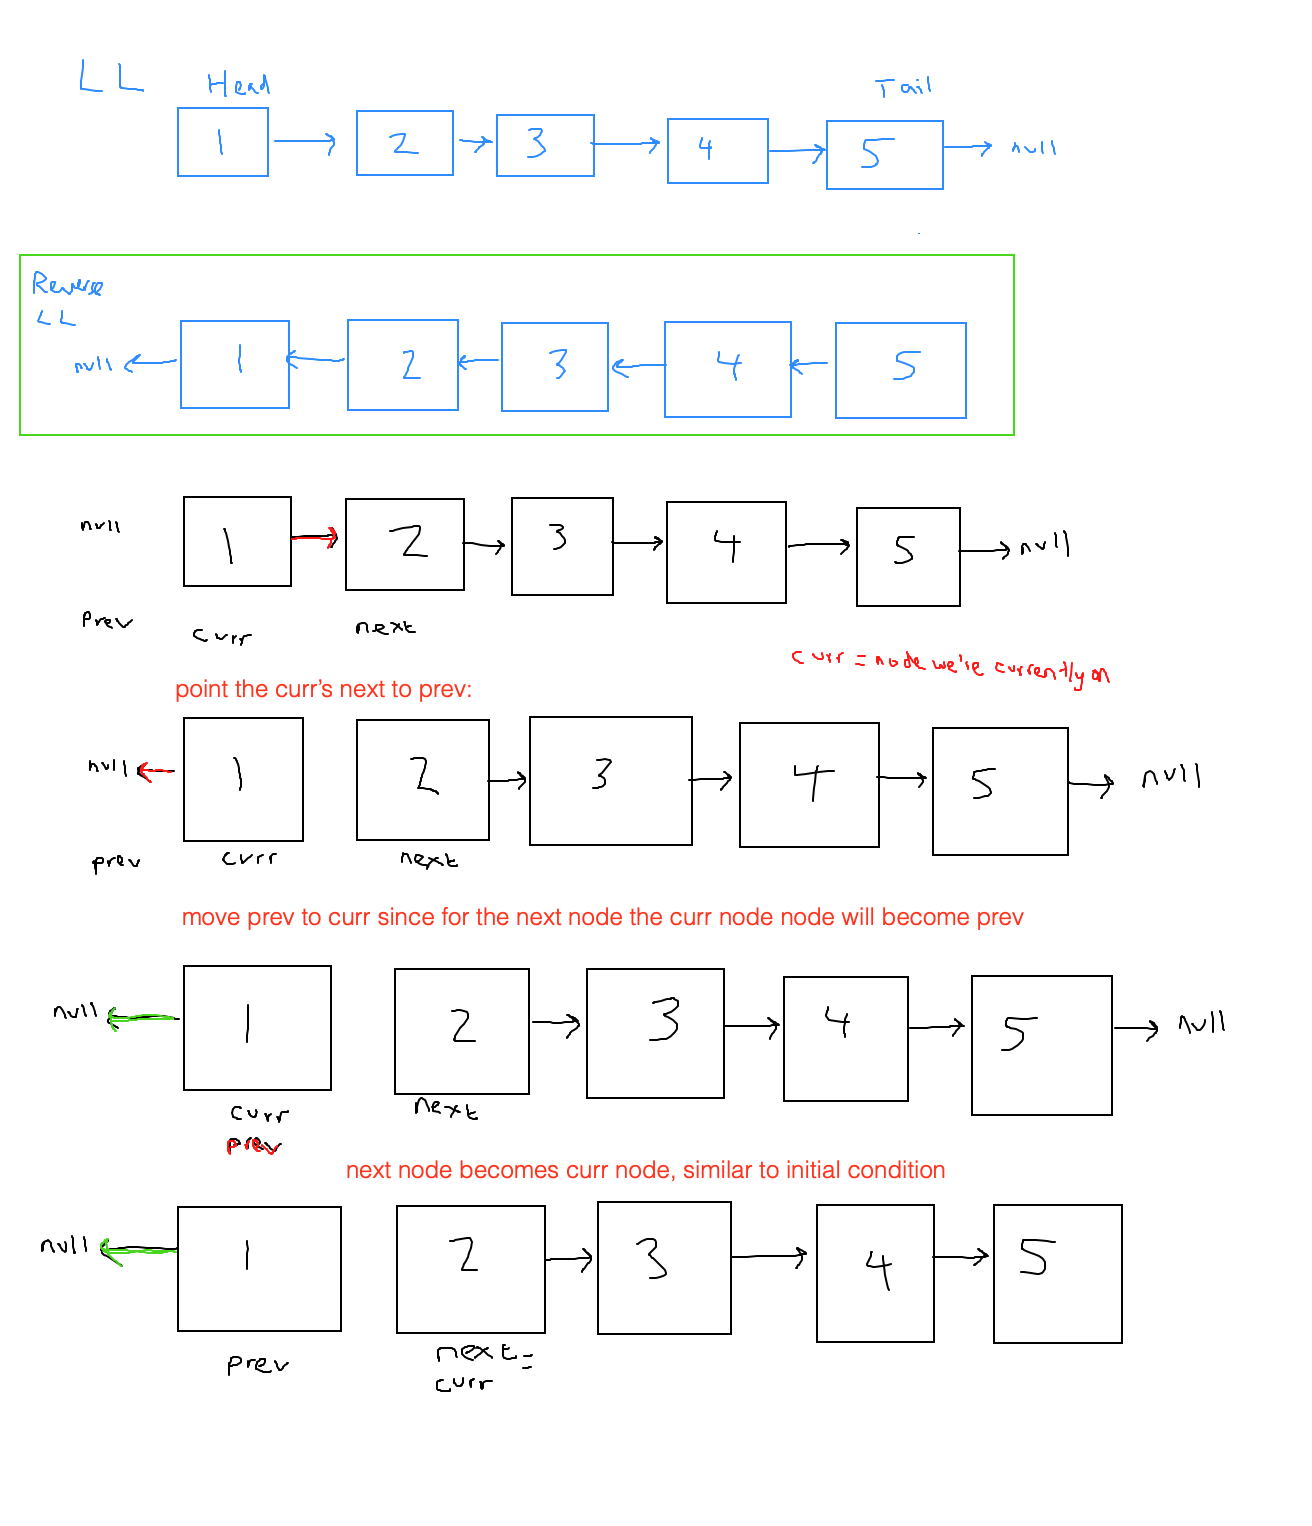 LL Head Tail
1 2 3 4 5 null
Reverse
LL
null 1 2 3 4 5
null 1 2 3 4 5 null
Prev curr next
curr = node we're currently on
point the curr's next to prev:
null 1 2 3 4 5 null
prev curr next
move prev to curr since for the next node the curr node node will become prev
null 1 2 3 4 5 null
curr next
prev
next node becomes curr node, similar to initial condition
null 1 2 3 4 5
prev next =
curr